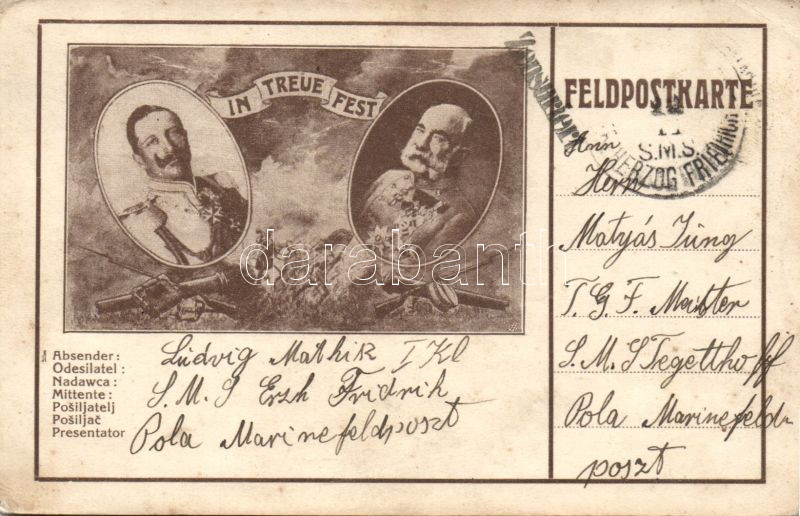 IN TREUE FEST
FELDPOSTKARTE
11
S.M.S.
ERZHERZOG FRIEDRICH
Herrn
Matyás Jüng
T. G. F. Maister
S. M. S Tegetthoff
Pola Marinefeld-
poszt
Absender:
Odesilatel:
Nadawca:
Mittente:
Pošiljatelj
Pošiljač
Presentator
Lüdvig Mathik I Kl
S. M. S Erzh Fridrik
Pola Marinefeldposzt
darabanth.com